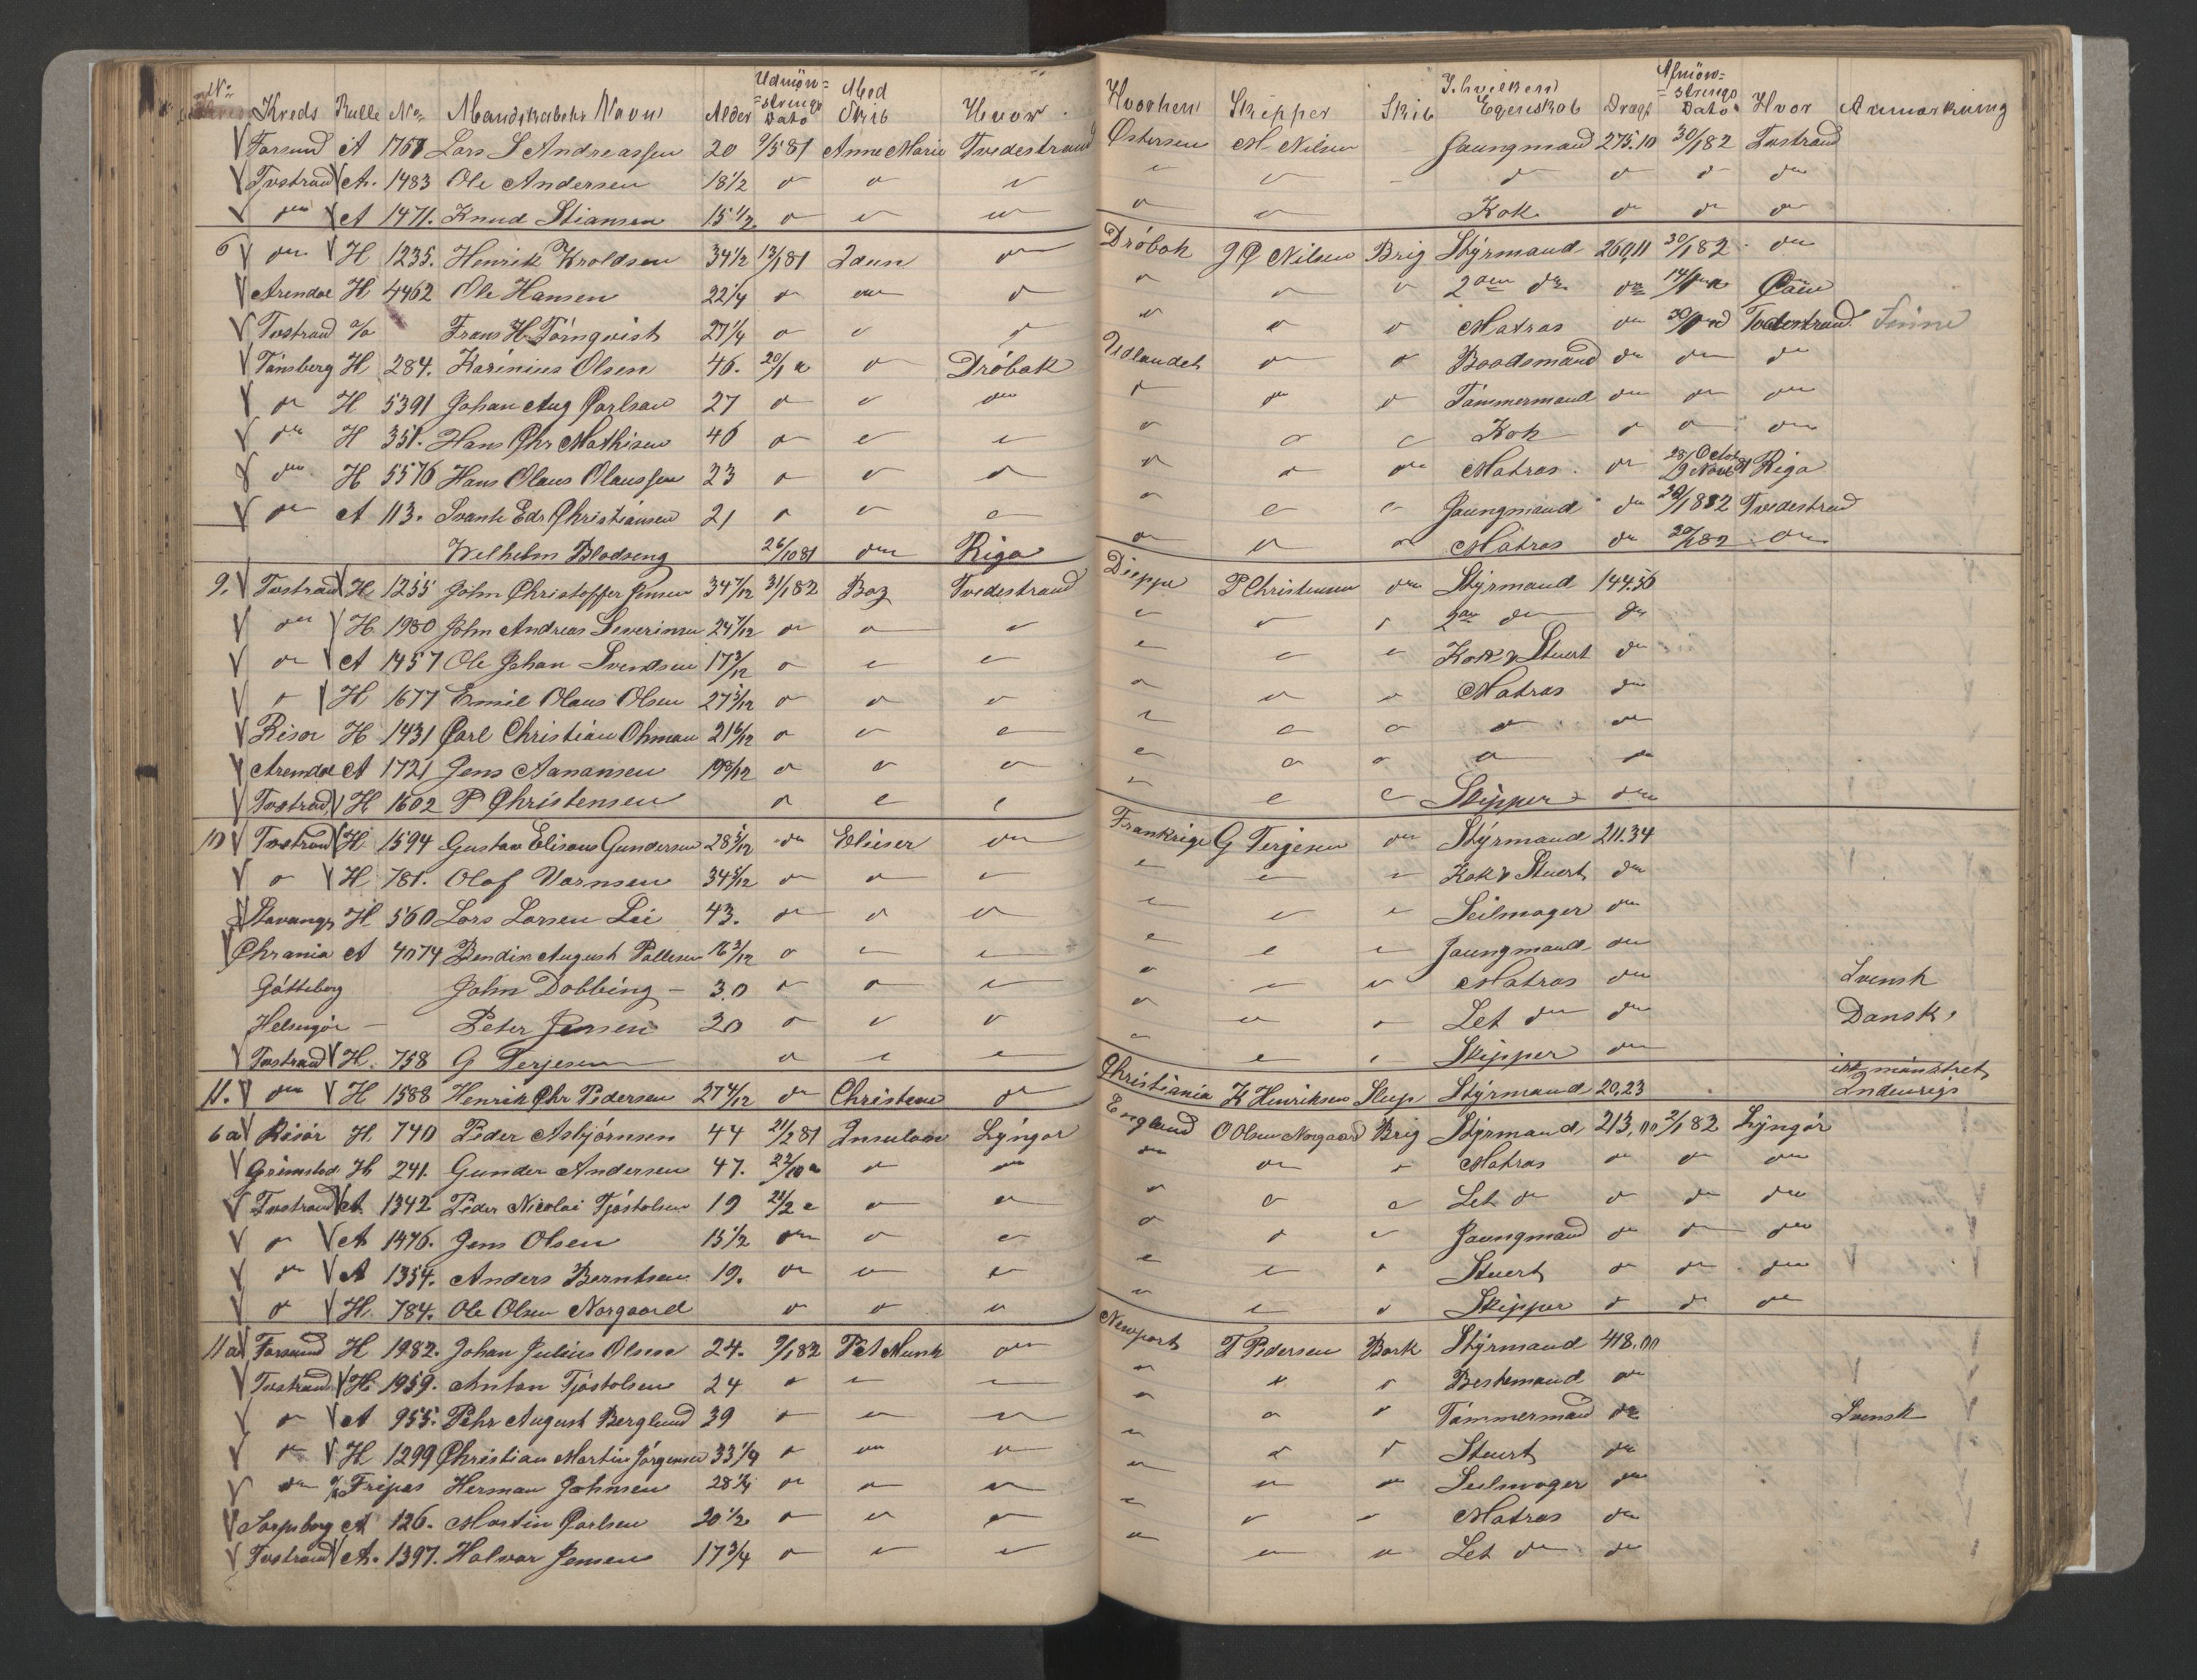 No Kreds Rulle No Mandskabets Navn Alder Udmönstrings Dato Med Skib Hvor Hvorhen Skipper Skib I hvilken Egenskab Drægt Afmönstrings Dato Hvor Anmærkning
Farsund A 1757 Lars S Andreassen 20 9/5 81 Anne Marie Tvedestrand Östersøen M Nilsen Jaungmand 275.10 30/1 82 Tvstrand
Tvstrand A. 1483 Ole Andersen 18 1/2 do do do do do do do do do
do A 1471. Knud Stiansen 15 1/2 do do do do do Kok do do do
6 do H 1235. Henrik Kroldsen 34 1/2 13/1 81 Idun do Dröbak J P Nilsen Brig Stýrmand 260,11 30/1 82 do
Arendal H 4462 Ole Hansen 22 1/4 do do do do do do 2den do do 14/1 Caen
Tvstrand Frans H. Törnqvist 27 1/4 do do do do do do Matros do 30/1 Tvedestrand Finne
Tönsberg H 284. Karinius Olsen 46. 20/1 do Dröbak Udlandet do do Baadsmand do do do
do H 5391 Johan Aug Carlsen 27 do do do do do do Tömmermand do do do
do H 351. Hans Chr Mathisen 46 do do do do do do Kok do do do
do H 5576 Hans Olaus Olaussen 23 do do do do do do Matros do Riga
do A 113. Svante Edv Christiansen 21 do do do do do do Jaungmand do 30/1 82 Tvedestrand
Wilhelm Blodseng 26/10 81 do Riga do do do Matros do 30/1 82 do
9. Tvstrand H 1255 John Christoffer Jensen 34 7/12 31/1 82 Boz Tvedestrand Dieppe P Christensen do Stýrmand 144.56
do H 1980 John Andreas Severinsen 24 7/12 do do do do do do 2den do do
do A 1457 Ole Johan Svendsen 17 3/12 do do do do do do Kok & Stuert do
do H 1677 Emil Olaus Olsen 27 5/12 do do do do do do Matros do
Risör H 1431 Carl Christian Ohman 21 6/12 do do do do do do do do
Arendal A 1721 Jens Aanansen 19 do do do do do do do do
Tvstrand H 1602 P Christensen do do do do do do Skipper do
10 Tvstrand H. 1594 Gustav Elisæus Gundersen 28 5/12 do Elieser do Frankrige G Terjesen do Stýrmand 211.34
do H 781. Olaf Warnsen 34 5/12 do do do do do do Kok & Stuert do
Stavanger H 560 Lars Larsen Lie 43. do do do do do do Seilmager do
Chrania A 4074 Bendix August Pallesen 16 3/12 do do do do do do Jaungmand do
Götteborg John Dobbing 30 do do do do do do Matros do Svensk
Helsingör Peter Jensen 20 do do do do do do Let do do Dansk
Tvstrand H. 758 G Terjesen do do do do do do Skipper do
11. do H 1588 Henrik Chr Pedersen 27 4/12 do Christine do Christiania K Henriksen Slup Stýrmand 20,23 mönstret Indenrigs
6a Risör H 740 Peder Asbjörnsen 44 21/2 81 Insulan Lýngör England O Olsen Norgaard Brig Stýrmand 213,00 2/1 82 Lýngör
Grimstad H 241. Gunder Andersen 47. 22/10 do do do do do Matros do do do
Tvstrand A. 1342 Peder Nicolai Tjöstolsen 19 21/2 do do do do do Let do do do do
do A 1476. Jens Olsen 15 1/2 do do do do do do Jaungmand do do do
do A 1354. Anders Berntsen 19. do do do do do do Stuert do do do
do H. 784. Ole Olsen Norgaard do do do do do do Skipper do do do
11a Farsund H 1982. Johan Julius Olsen 24. 9/1 82 P A Munk do Newport T Pedersen Bark Stýrmand 418.00
Tvstrand H 1959. Anton Tjöstolsen 24 do do do do do do Bestemand do
do A 955. Pehr August Berglund 39 do do do do do do Tömmermand do Svensk
do H 1299 Christian Martin Jörgensen 33 1/4 do do do do do do Stuert do
do Fripas Herman Johnsen 28 1/4 do do do do do do Seilmager do
Sarpsborg A 126. Martin Carlsen 20 1/2 do do do do do do Matros do
Tvstrand A. 1397. Halvor Jensen 17 3/4 do do do do do do Let do do